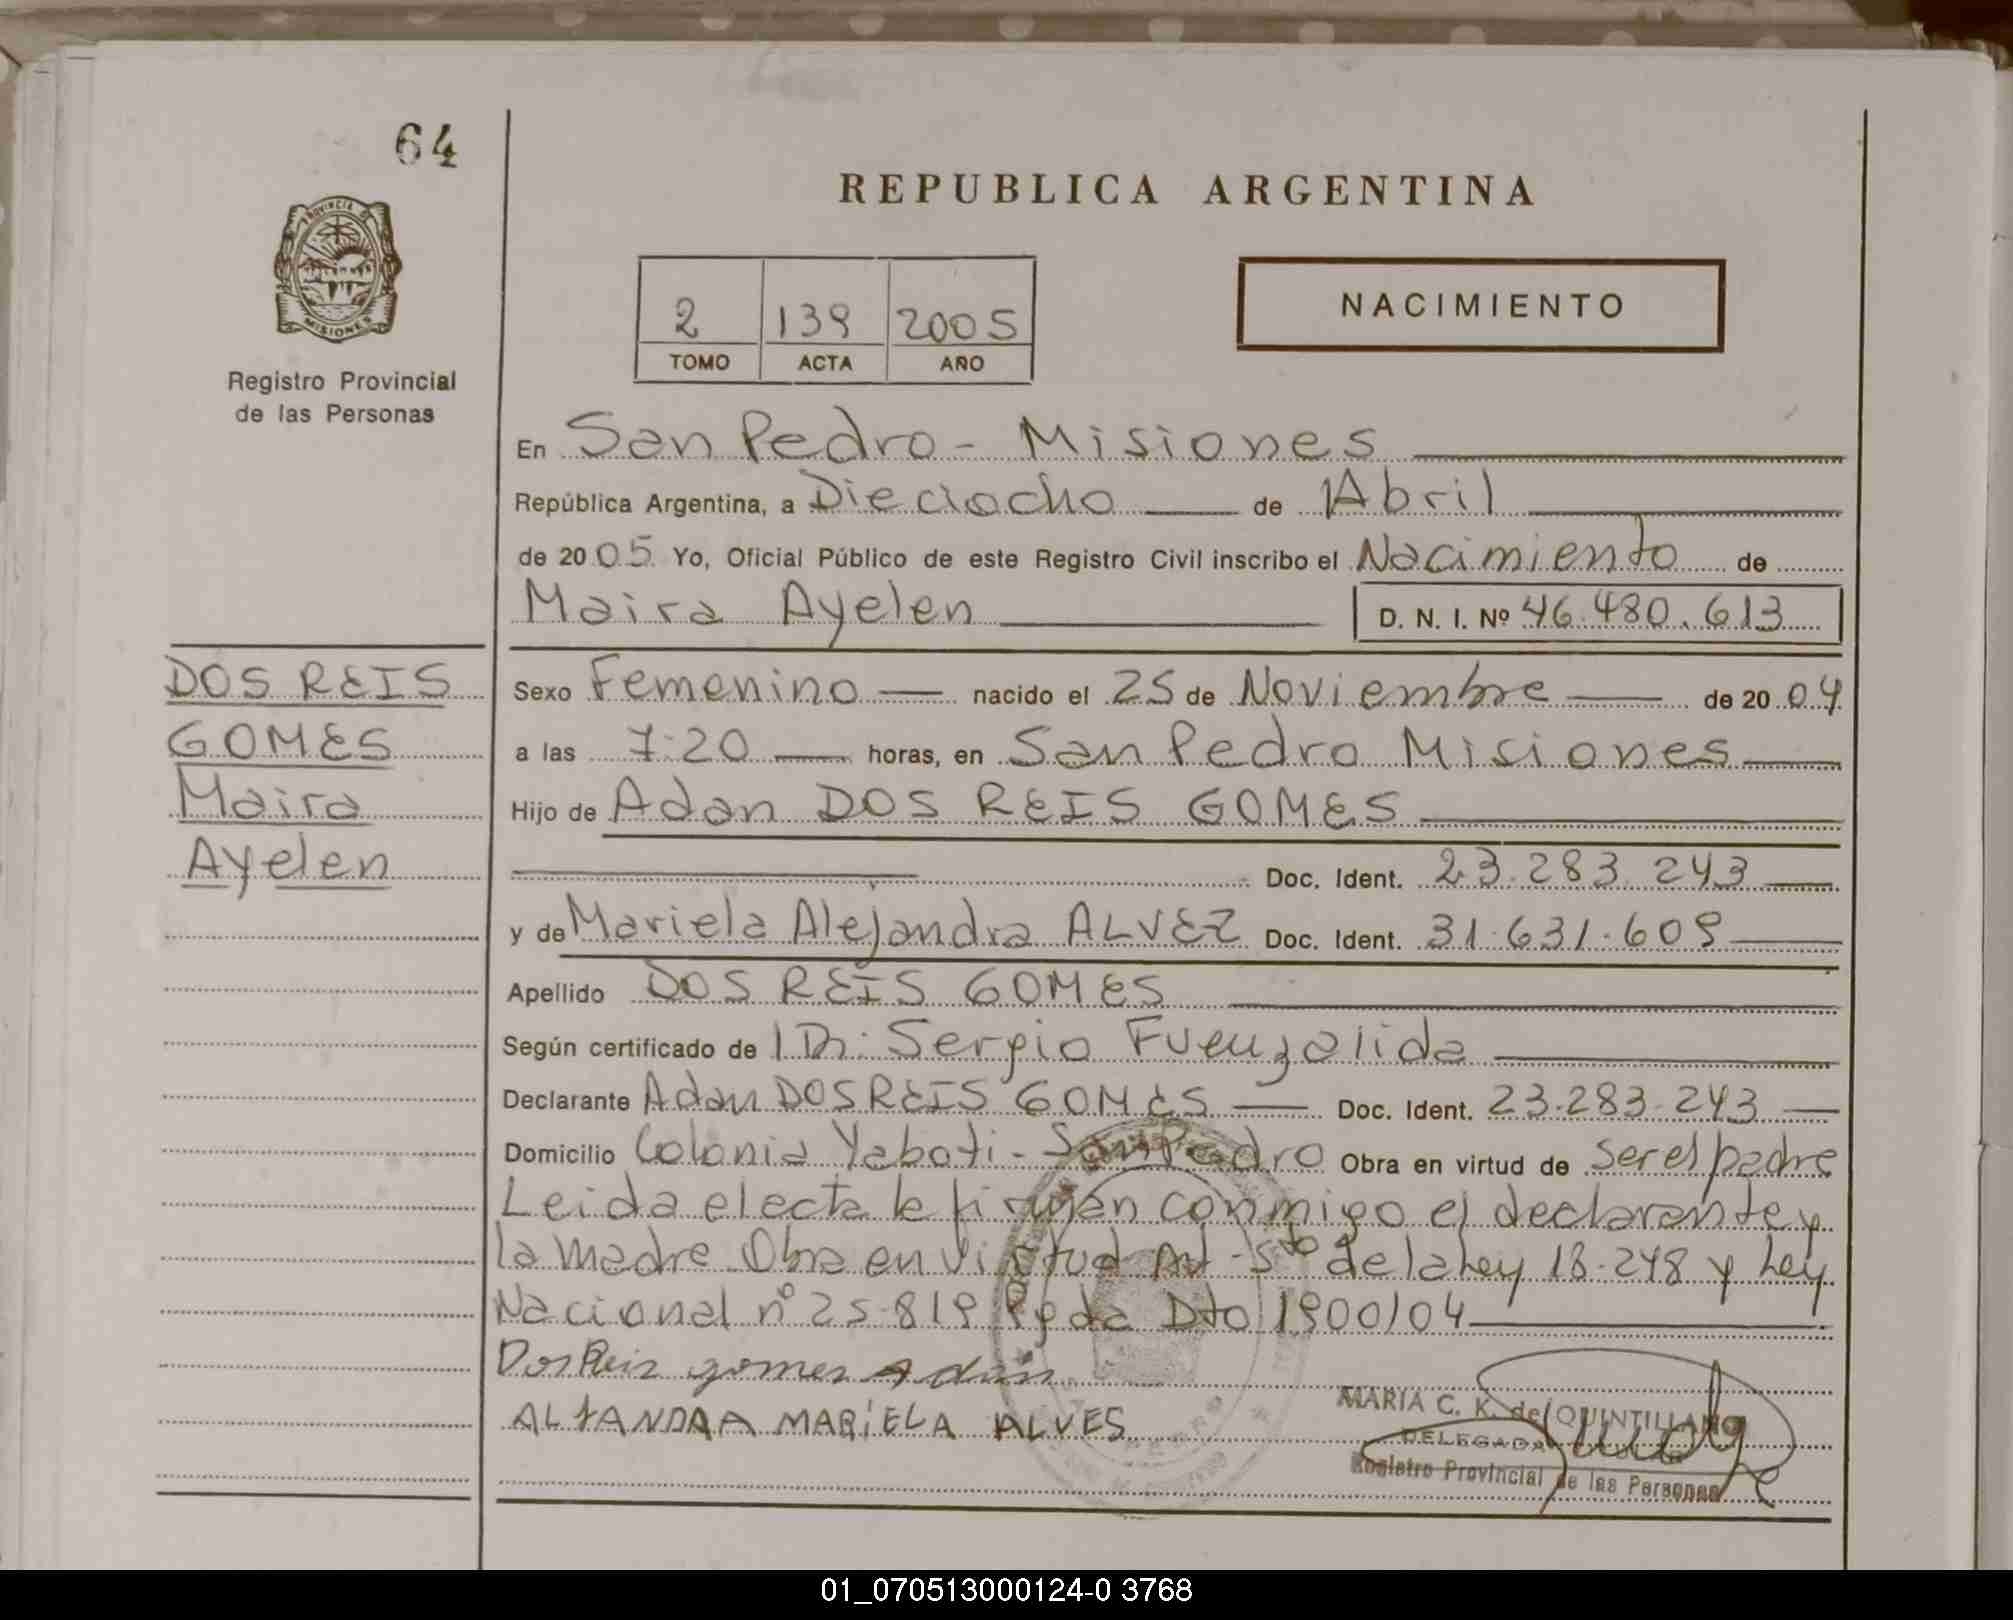 64
PROVINCIA DE
MISIONES
Registro Provincial
de las Personas
REPUBLICA ARGENTINA
2 139 2005
TOMO ACTA AÑO
NACIMIENTO
En San Pedro - Misiones
República Argentina, a Dieciocho de Abril
de 2005 Yo, Oficial Público de este Registro Civil inscribo el Nacimiento de
Maira Ayelen D. N. I. Nº 46.480.613
DOS REIS
GOMES
Maira
Ayelen
Sexo Femenino nacido el 25 de Noviembre de 2004
a las 7:20 horas, en San Pedro Misiones
Hijo de Adan DOS REIS GOMES
Doc. Ident. 23.283.243
y de Mariela Alejandra ALVEZ Doc. Ident. 31.631.609
Apellido DOS REIS GOMES
Según certificado de Dr. Sergio Fuenzalida
Declarante Adan DOS REIS GOMES Doc. Ident. 23.283.243
Domicilio Colonia Yaboti - San Pedro Obra en virtud de ser el padre
Leida el acta la firman conmigo el declarante y
la madre Obra en virtud Art - 5to de la Ley 18.248 y Ley
Nacional nº 25.819 Pgda Dto 1900/04
Dos Reis gomes Adán
ALJANDRA MARIELA ALVES
MARIA C. K. de QUINTILLANO
DELEGADA
Registro Provincial de las Personas
01_070513000124-0 3768